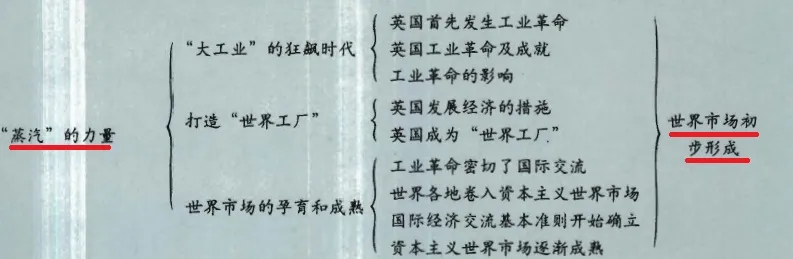 “蒸汽”的力量
“大工业”的狂飙时代
英国首先发生工业革命
英国工业革命及成就
工业革命的影响
打造“世界工厂”
英国发展经济的措施
英国成为“世界工厂”
世界市场的孕育和成熟
工业革命密切了国际交流
世界各地卷入资本主义世界市场
国际经济交流基本准则开始确立
资本主义世界市场逐渐成熟
世界市场初
步形成